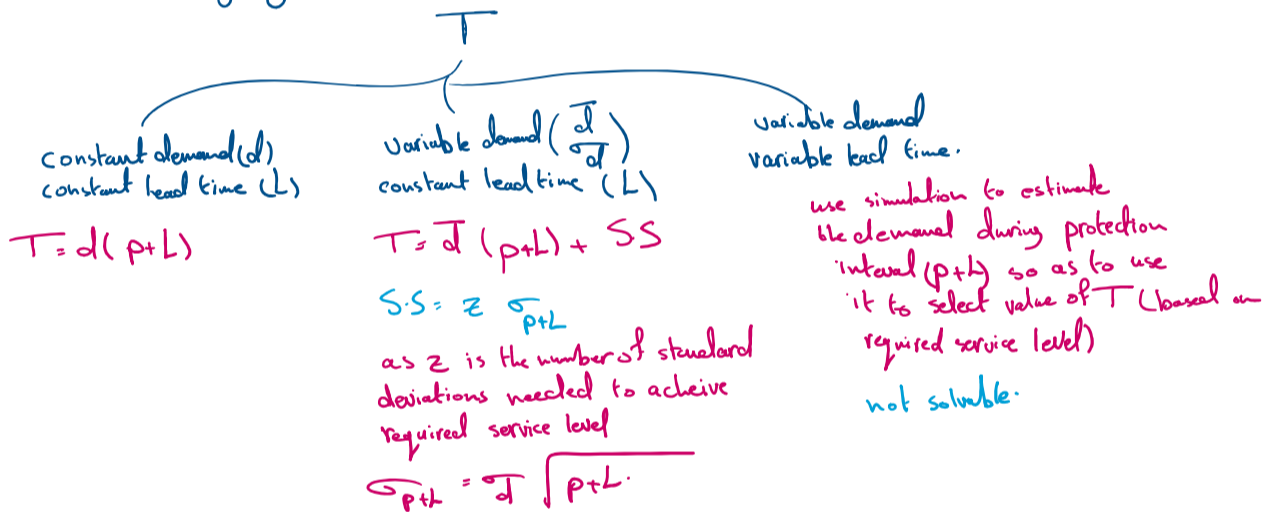 T
constant demand (d)
constant lead time (L)
T = d( p+L)
variable demand ( d̄ σd )
constant lead time (L)
T = d̄ (p+L) + SS
S.S = z σp+L
as z is the number of standard
deviations needed to acheive
required service level
σp+L = σd √p+L.
variable demand
variable lead time.
use simulation to estimate
the demand during protection
interval (p+L) so as to use
it to select value of T (based on
required service level)
not solvable.